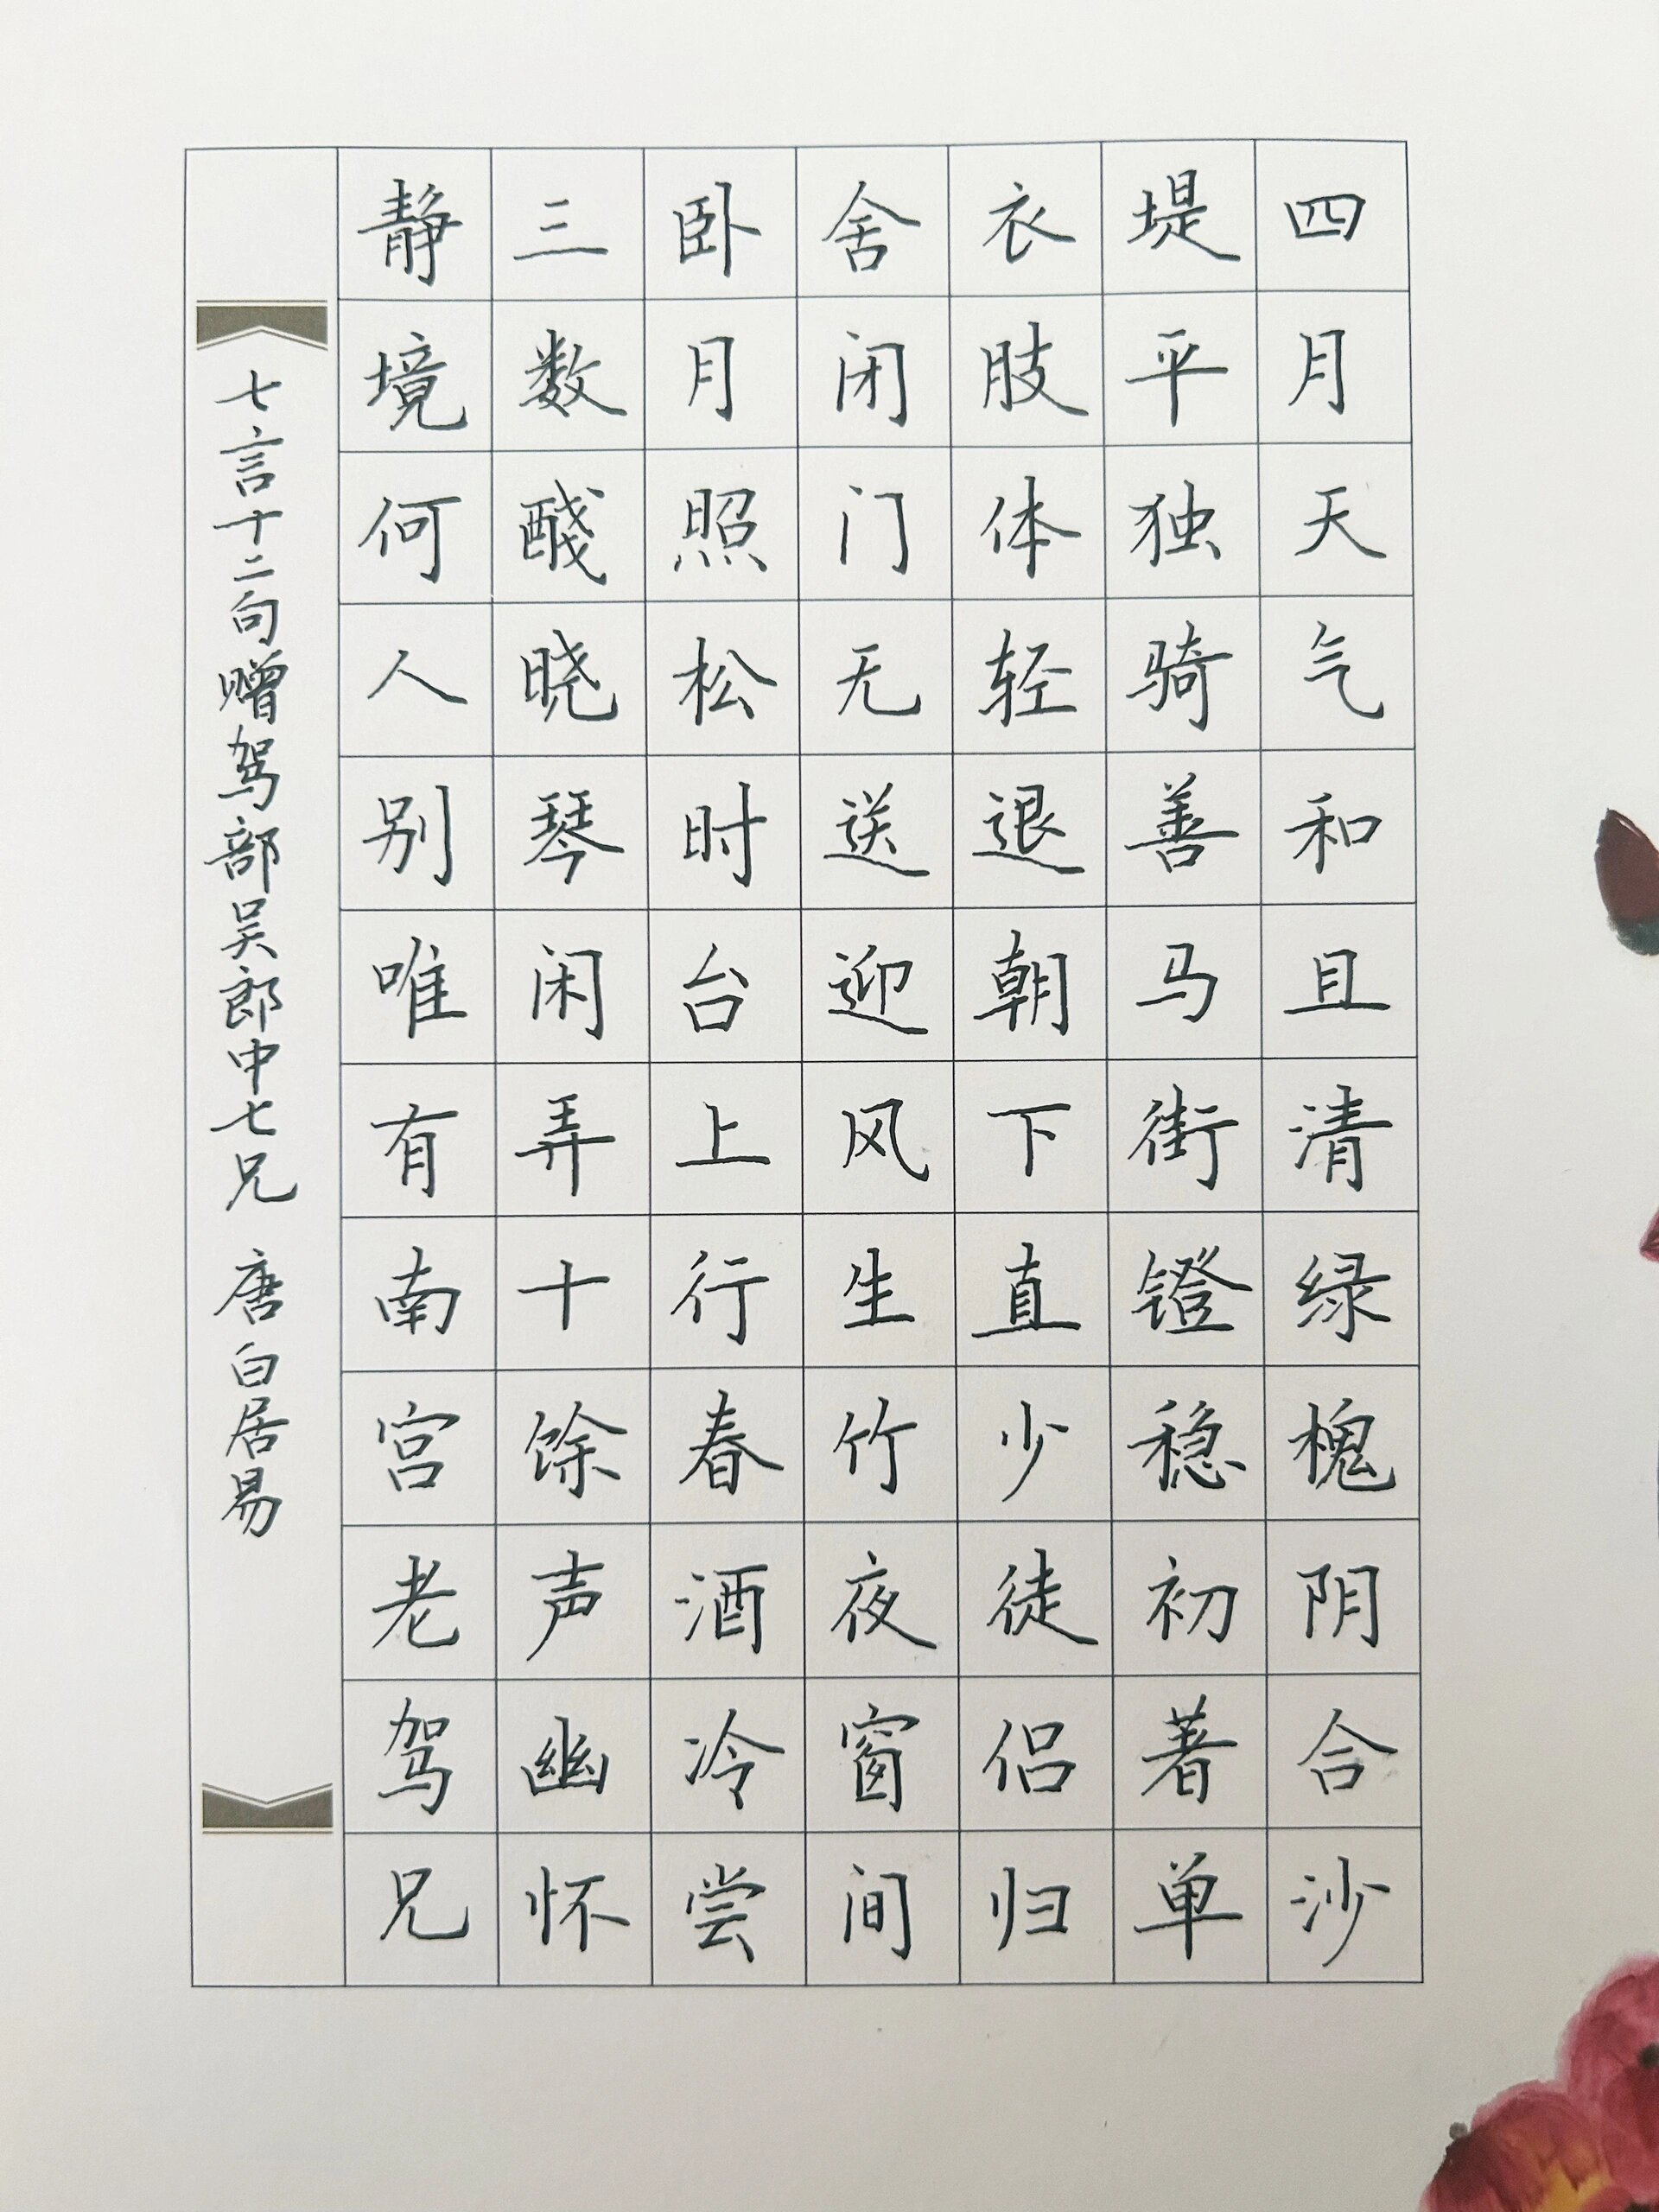 四月天气和且清绿槐阴合沙
堤平独骑善马街镫稳初著单
衣肢体轻退朝下直少徒侣归
舍闭门无送迎风生竹夜窗间
卧月照松时台上行春酒冷尝
三数醆晓琴闲弄十馀声幽怀
静境何人别唯有南宫老驾兄
七言十二句赠驾部吴郎中七兄 唐白居易